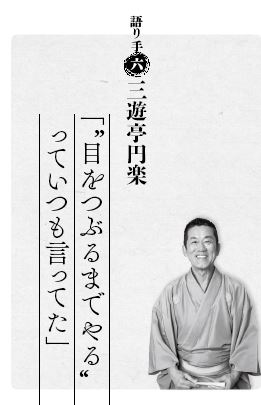 語り手 六 三遊亭円楽
「〝目をつぶるまでやる〟
っていつも言ってた」